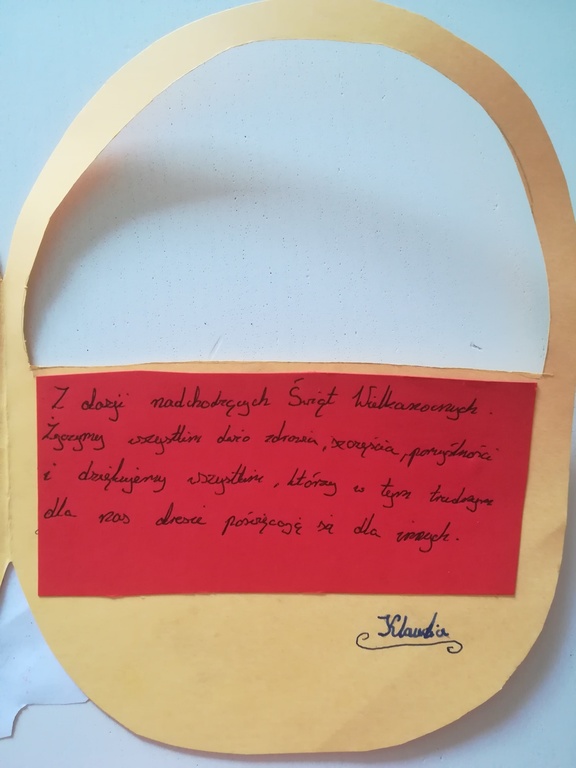 Z okazji nadchodzących Świąt Wielkanocnych.
Życzymy wszystkim dużo zdrowia, szczęścia, pomyślności
i dziękujemy wszystkim, którzy w tym trudnym
dla nas okresie poświęcają się dla innych.
Klaudia